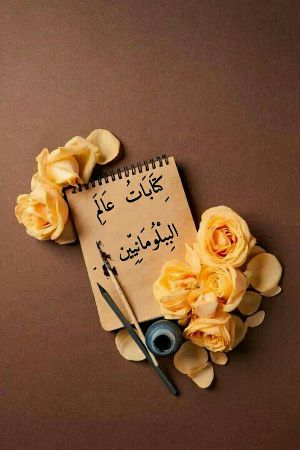 كِتَابَاتُ عَالَمِ
البِبْلُومَانِيِّين